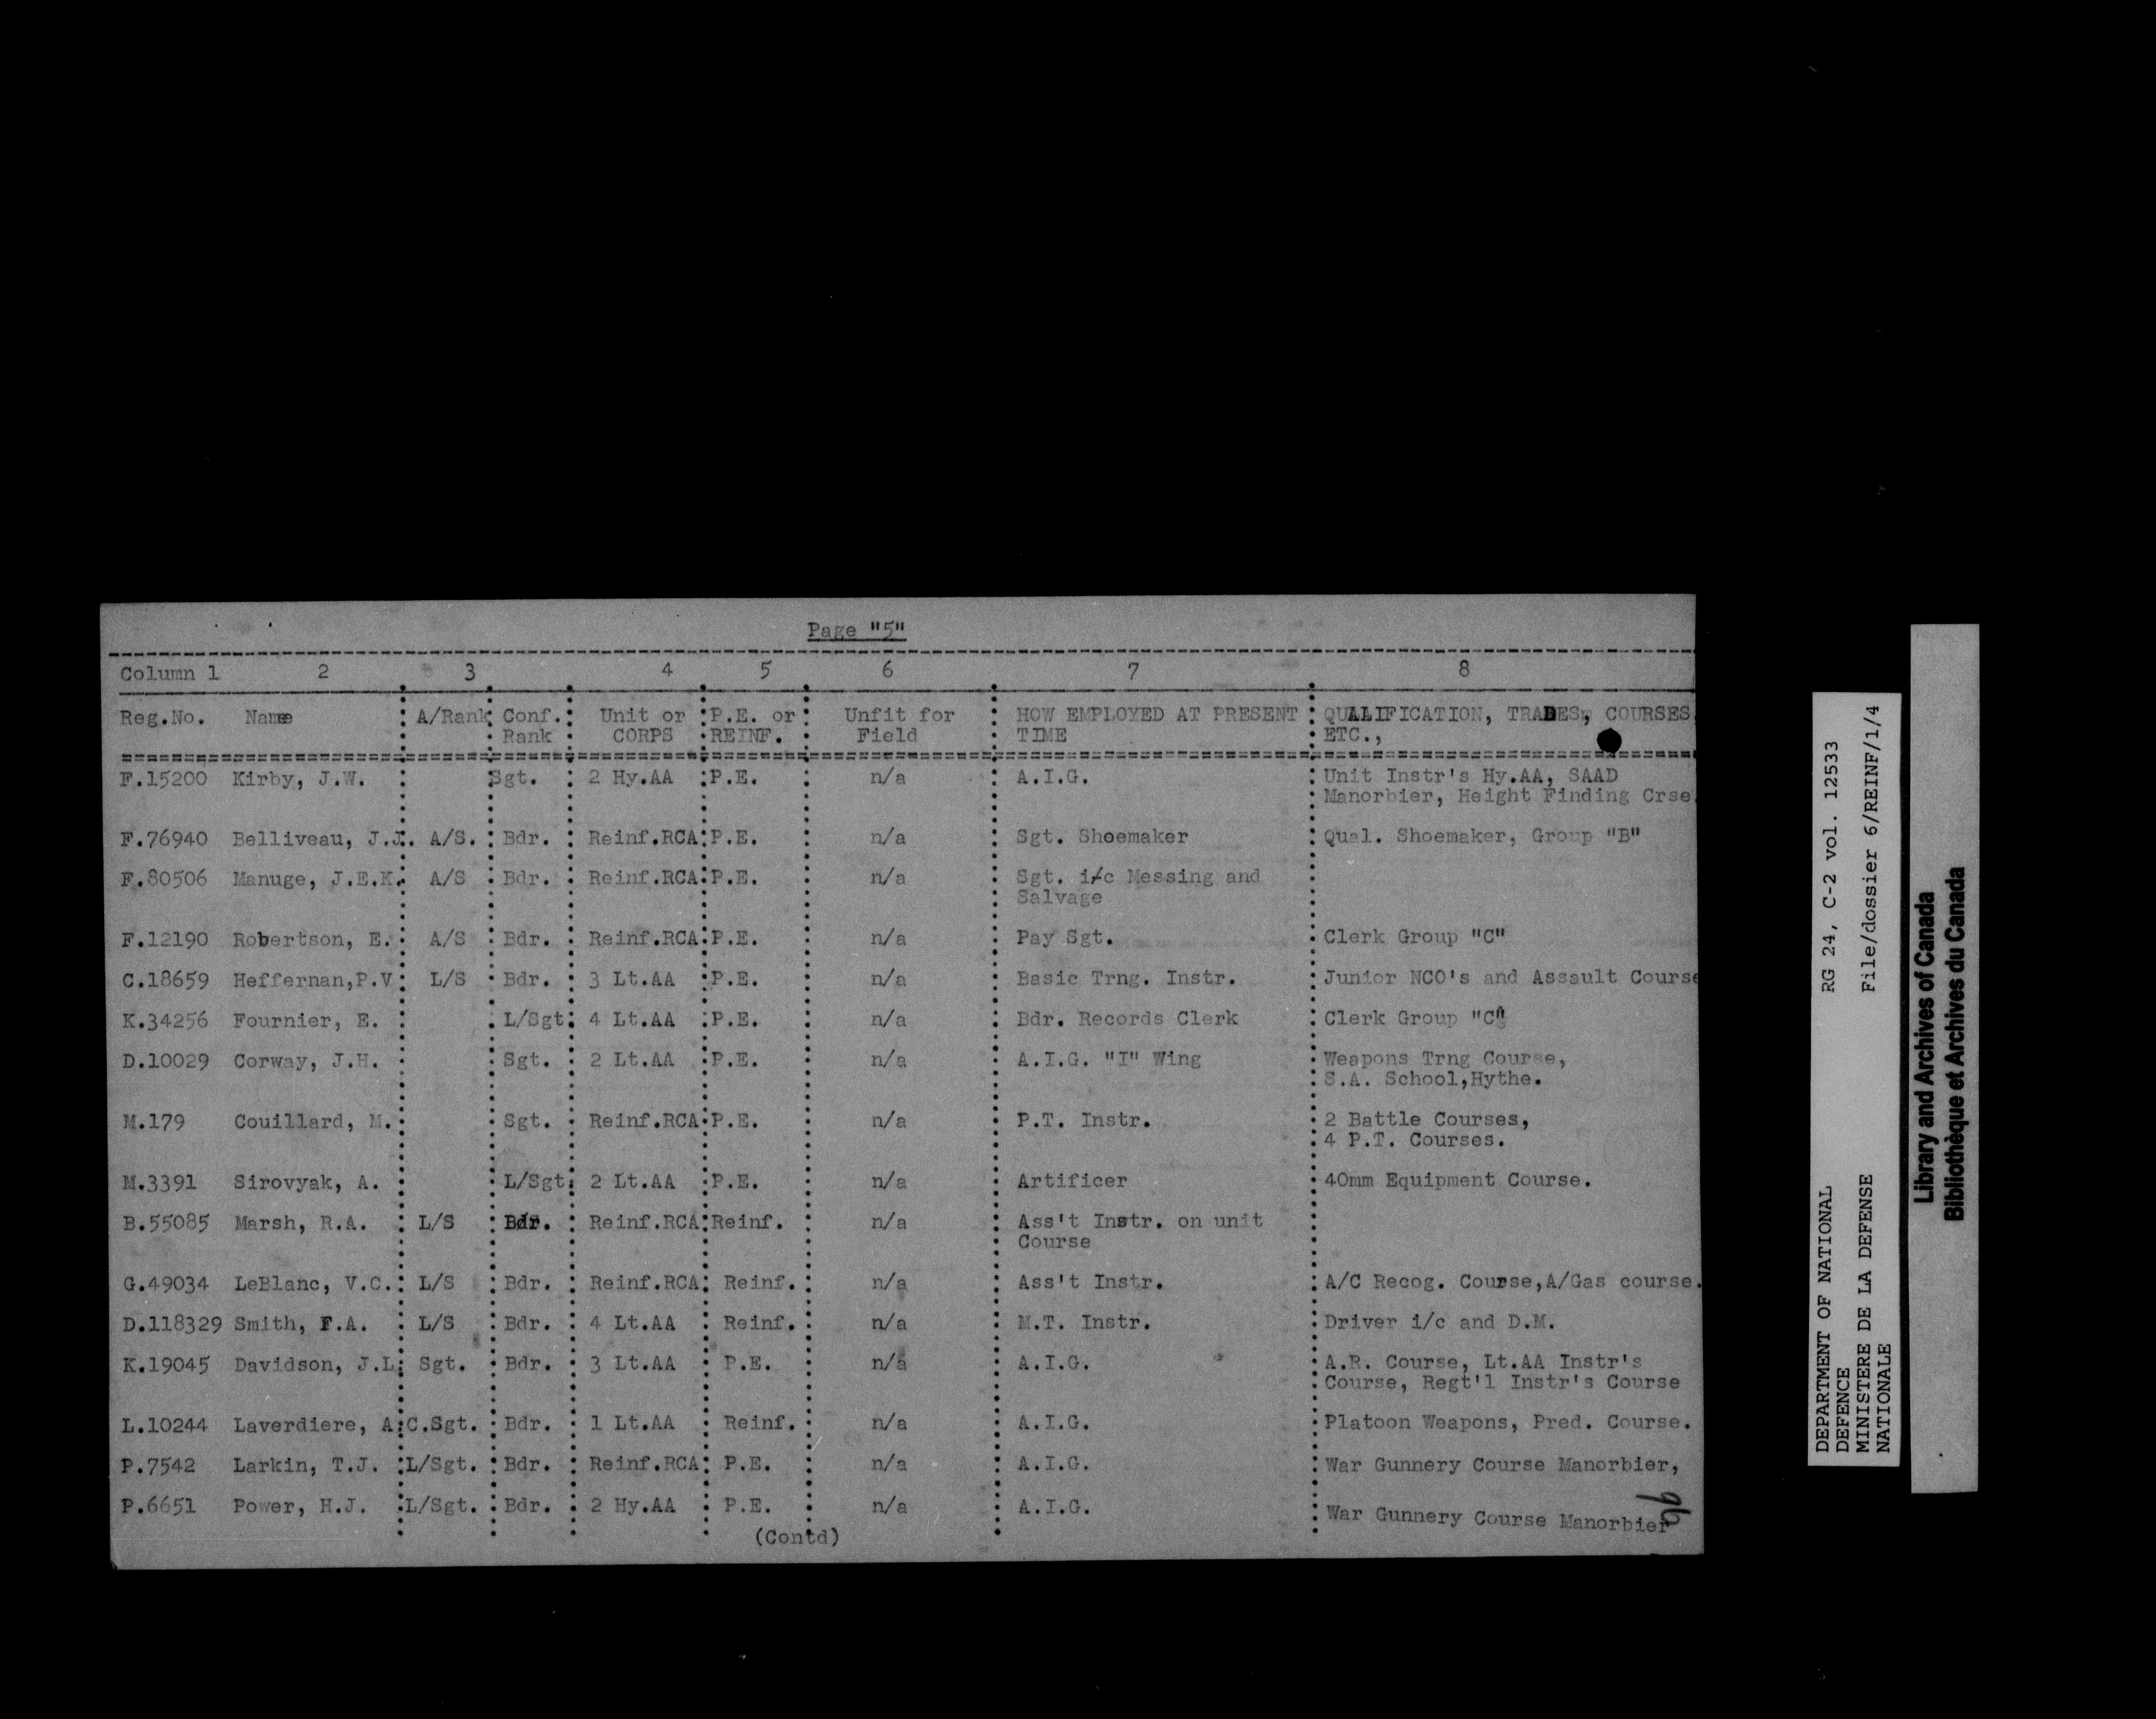 Page "5"
Column 1 2 3 4 5 6 7 8
Reg.No. Name A/Rank Conf. Unit or P.E. or Unfit for HOW EMPLOYED AT PRESENT QUALIFICATION, TRADES, COURSES,
Rank CORPS REINF. Field TIME ETC.,
F.15200 Kirby, J.W. Sgt. 2 Hy.AA P.E. n/a A.I.G. Unit Instr's Hy.AA, SAAD
Manorbier, Height Finding Crse.
F.76940 Belliveau, J.J. A/S. Bdr. Reinf.RCA P.E. n/a Sgt. Shoemaker Qual. Shoemaker, Group "B"
F.80506 Manuge, J.E.K. A/S Bdr. Reinf.RCA P.E. n/a Sgt. i/c Messing and
Salvage
F.12190 Robertson, E. A/S Bdr. Reinf.RCA P.E. n/a Pay Sgt. Clerk Group "C"
C.18659 Heffernan,P.V. L/S Bdr. 3 Lt.AA P.E. n/a Basic Trng. Instr. Junior NCO's and Assault Course
K.34256 Fournier, E. L/Sgt. 4 Lt.AA P.E. n/a Bdr. Records Clerk Clerk Group "C"
D.10029 Corway, J.H. Sgt. 2 Lt.AA P.E. n/a A.I.G. "I" Wing Weapons Trng Course,
S.A. School,Hythe.
M.179 Couillard, M. Sgt. Reinf.RCA P.E. n/a P.T. Instr. 2 Battle Courses,
4 P.T. Courses.
M.3391 Sirovyak, A. L/Sgt. 2 Lt.AA P.E. n/a Artificer 40mm Equipment Course.
B.55085 Marsh, R.A. L/S Bdr. Reinf.RCA Reinf. n/a Ass't Instr. on unit
Course
G.49034 LeBlanc, V.C. L/S Bdr. Reinf.RCA Reinf. n/a Ass't Instr. A/C Recog. Course,A/Gas course.
D.118329 Smith, F.A. L/S Bdr. 4 Lt.AA Reinf. n/a M.T. Instr. Driver i/c and D.M.
K.19045 Davidson, J.L. Sgt. Bdr. 3 Lt.AA P.E. n/a A.I.G. A.R. Course, Lt.AA Instr's
Course, Regt'l Instr's Course
L.10244 Laverdiere, A.C. Sgt. Bdr. 1 Lt.AA Reinf. n/a A.I.G. Platoon Weapons, Pred. Course.
P.7542 Larkin, T.J. L/Sgt. Bdr. Reinf.RCA P.E. n/a A.I.G. War Gunnery Course Manorbier,
P.6651 Power, H.J. L/Sgt. Bdr. 2 Hy.AA P.E. n/a A.I.G. War Gunnery Course Manorbier
(Contd)
DEPARTMENT OF NATIONAL RG 24, C-2 vol. 12533
DEFENCE
MINISTERE DE LA DEFENSE File/dossier 6/REINF/1/4
NATIONALE
Library and Archives of Canada
Bibliothèque et Archives du Canada